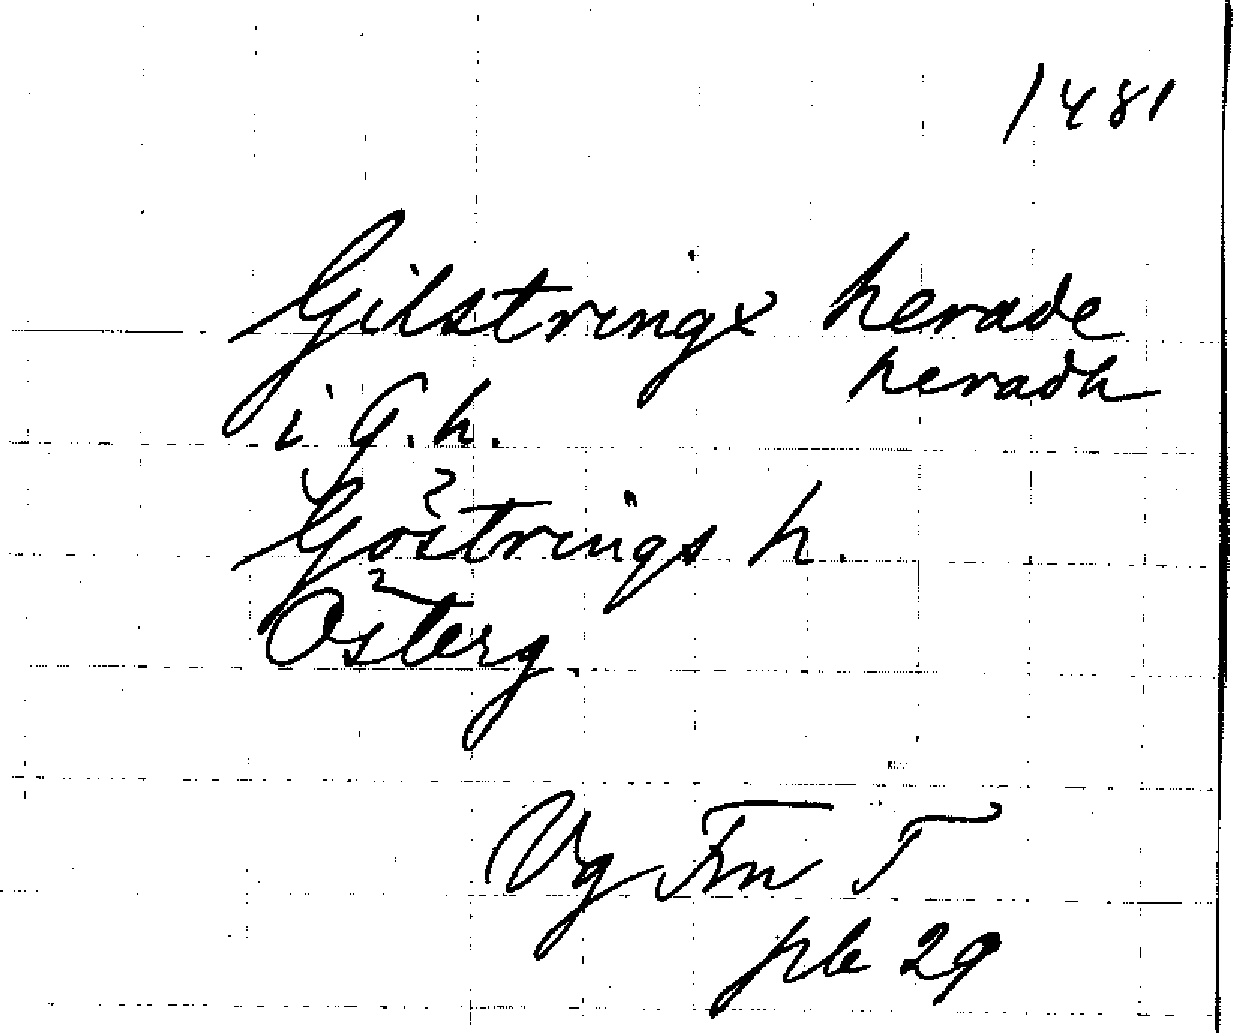 1481
Gilstringx herade
heradh
i G. h.
Göstrings h.
Österg.
Vg Fm T
pb 29